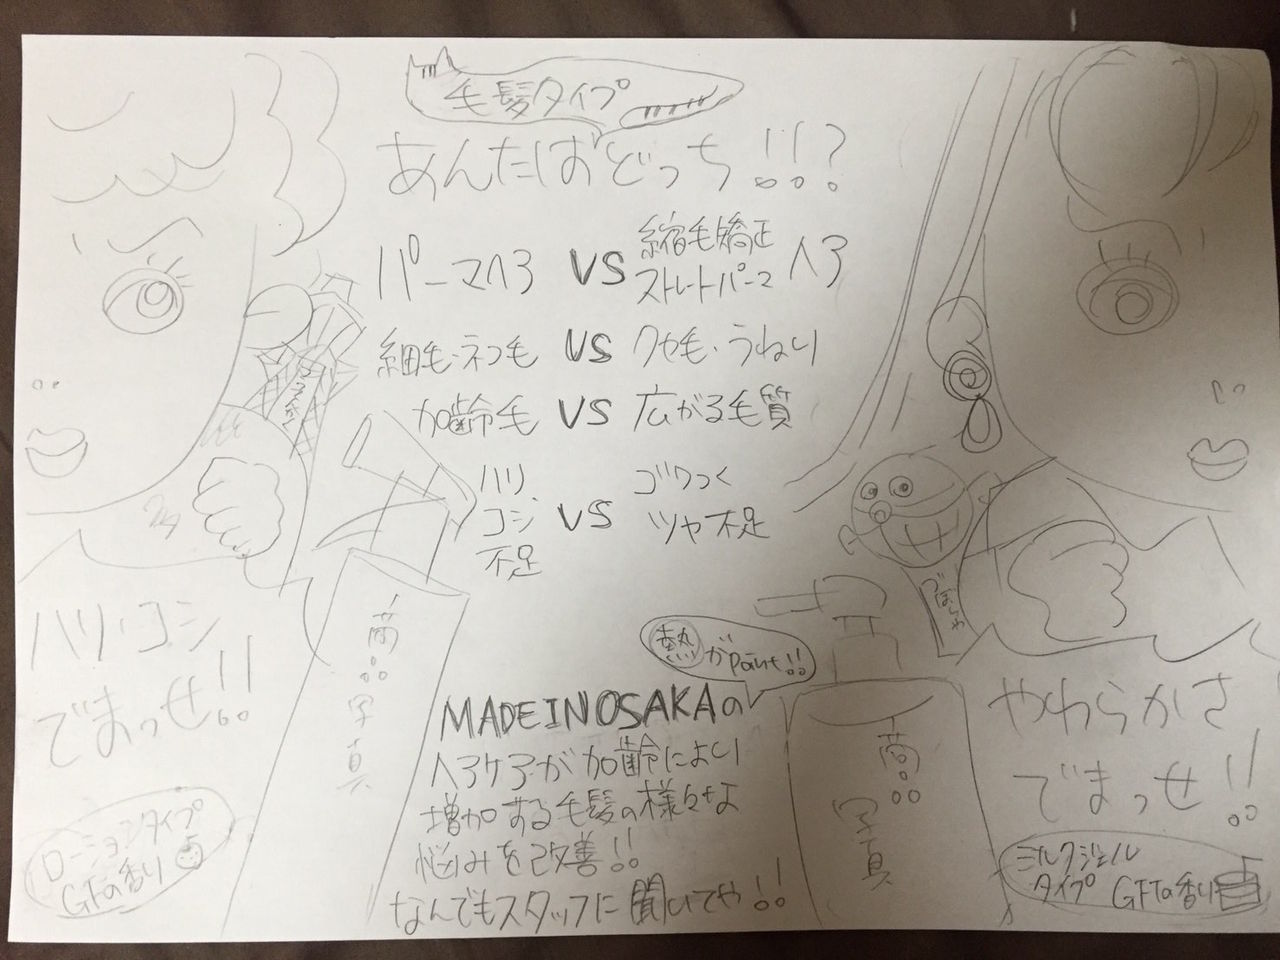 毛髪タイプ
あんたはどっち!!?
パーマヘア VS 縮毛矯正
ストレートパーマ ヘア
細毛・ネコ毛 VS クセ毛・うねり
加齢毛 VS 広がる毛質
ハリ
コシ
不足
VS
ゴワつく
ツヤ不足
ハリ・コシ
でまっせ!!
ローションタイプ
GFの香り
商品
写真
熱がpoint!!
MADE IN OSAKAの
ヘアケアが加齢により
増加する毛髪の様々な
悩みを改善!!
なんでもスタッフに聞いてや!!
づぼらや
商品
写真
やわらかさ
でまっせ!!
ミルクジェル
タイプ GFTの香り